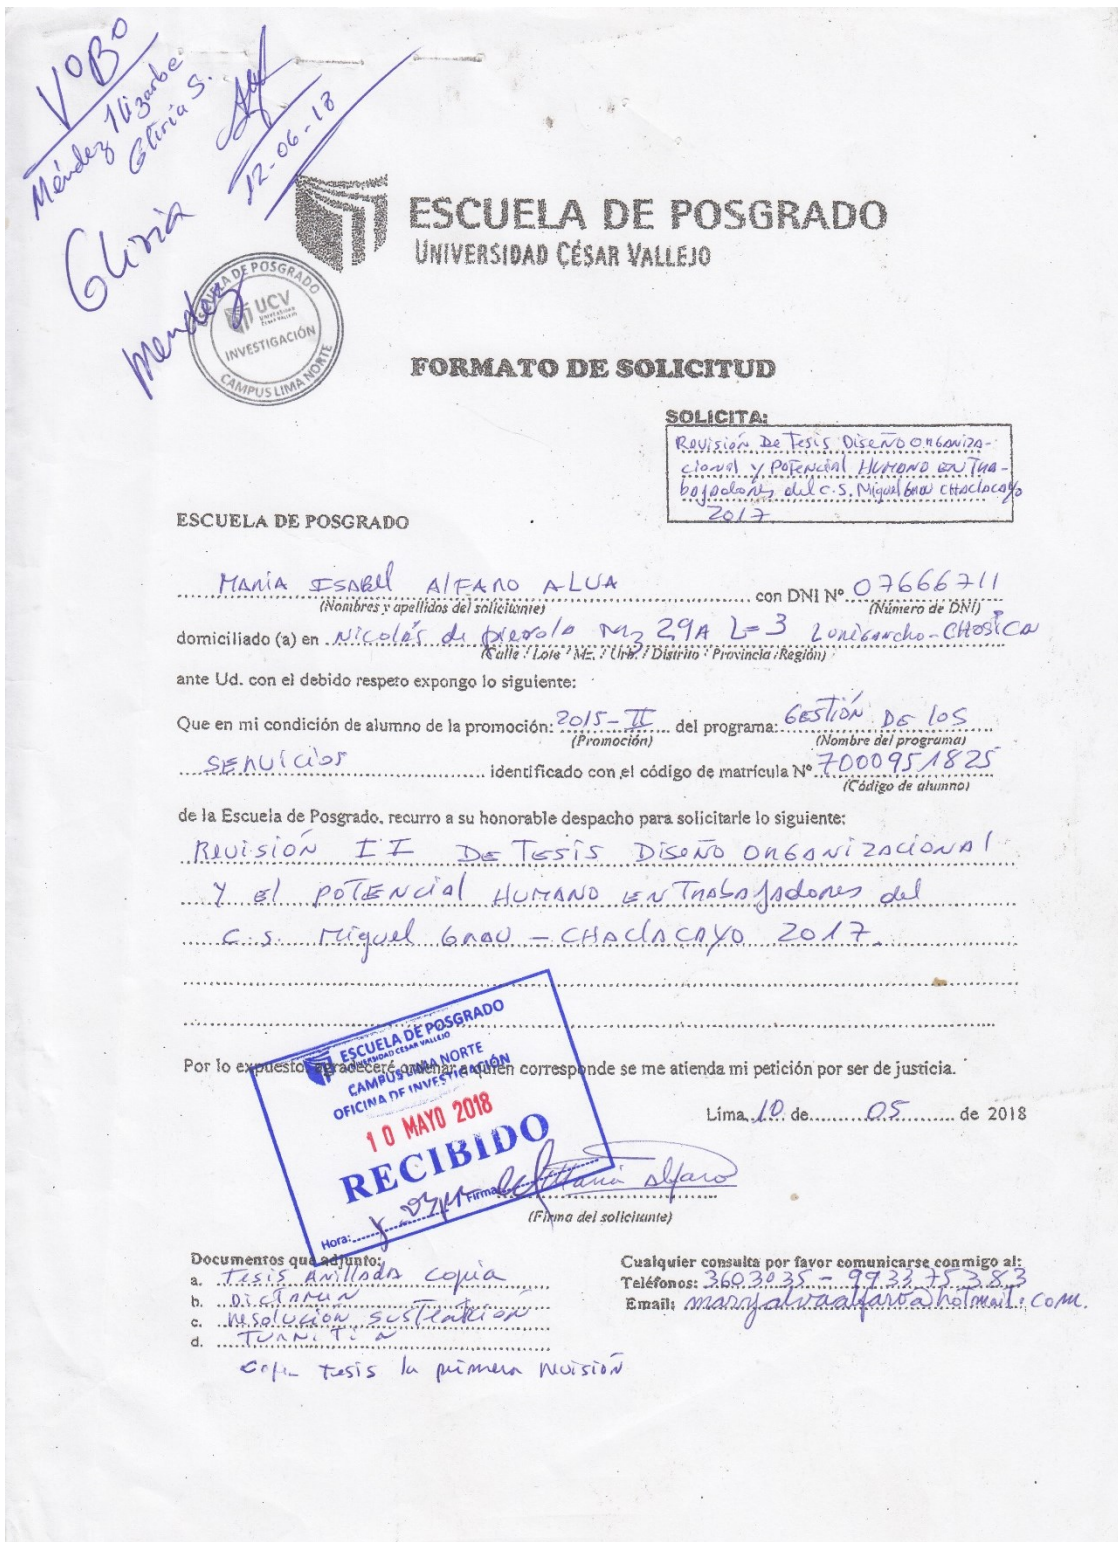 VºBº
Méndez Ilizarbe
Gliria S.
12-06-18
Gliria
Mendez
ESCUELA DE POSGRADO
UNIVERSIDAD CÉSAR VALLEJO
ESCUELA DE POSGRADO
UCV
UNIVERSIDAD
CÉSAR VALLEJO
INVESTIGACIÓN
CAMPUS LIMA NORTE
FORMATO DE SOLICITUD
SOLICITA:
Revisión De Tesis Diseño Organiza-
cional y Potencial Humano en Tra-
bajadores del C.S. Miguel Grau CHACLACAYO
2017
ESCUELA DE POSGRADO
MARIA ISABEL ALFARO ALVA con DNI Nº 07666711
(Nombres y apellidos del solicitante) (Número de DNI)
domiciliado (a) en Nicolás de pierola Mz 29A L=3 Lurigancho-CHOSICA
(Calle / Lote / Mz. / Urb. / Distrito / Provincia /Región)
ante Ud. con el debido respeto expongo lo siguiente:
Que en mi condición de alumno de la promoción: 2015-II del programa: GESTIÓN DE los
(Promoción) (Nombre del programa)
SERVICIOS identificado con el código de matrícula Nº 7000951825
(Código de alumno)
de la Escuela de Posgrado, recurro a su honorable despacho para solicitarle lo siguiente:
Revisión II DE TESIS DISEÑO ORGANIZACIONAL
Y El POTENCIAL HUMANO EN TRABAJADORES del
C.S. Miguel GRAU - CHACLACAYO 2017.
Por lo expuesto, agradeceré ordenar a quien corresponde se me atienda mi petición por ser de justicia.
ESCUELA DE POSGRADO
UNIVERSIDAD CÉSAR VALLEJO
CAMPUS LIMA NORTE
OFICINA DE INVESTIGACIÓN
10 MAYO 2018
RECIBIDO
Hora: Firma
Lima, 10 de 05 de 2018
Maria Alfaro
(Firma del solicitante)
Documentos que adjunto:
a. Tesis Anillada copia
b. DICTAMEN
c. Resolución sustentación
d. TURNITIN
Copia Tesis la primera revisión
Cualquier consulta por favor comunicarse conmigo al:
Teléfonos: 3603035 - 993375383
Email: maryalvaalfaro@hotmail.com.